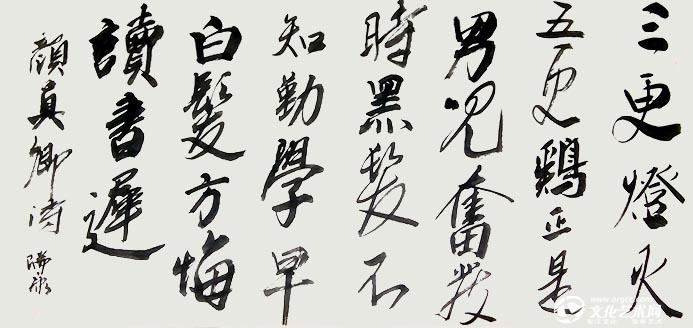 三更燈火
五更鷄正是
男兒奮發
時黑髮不
知勤學早
白髮方悔
讀書遲
顏真卿詩
文化艺术网